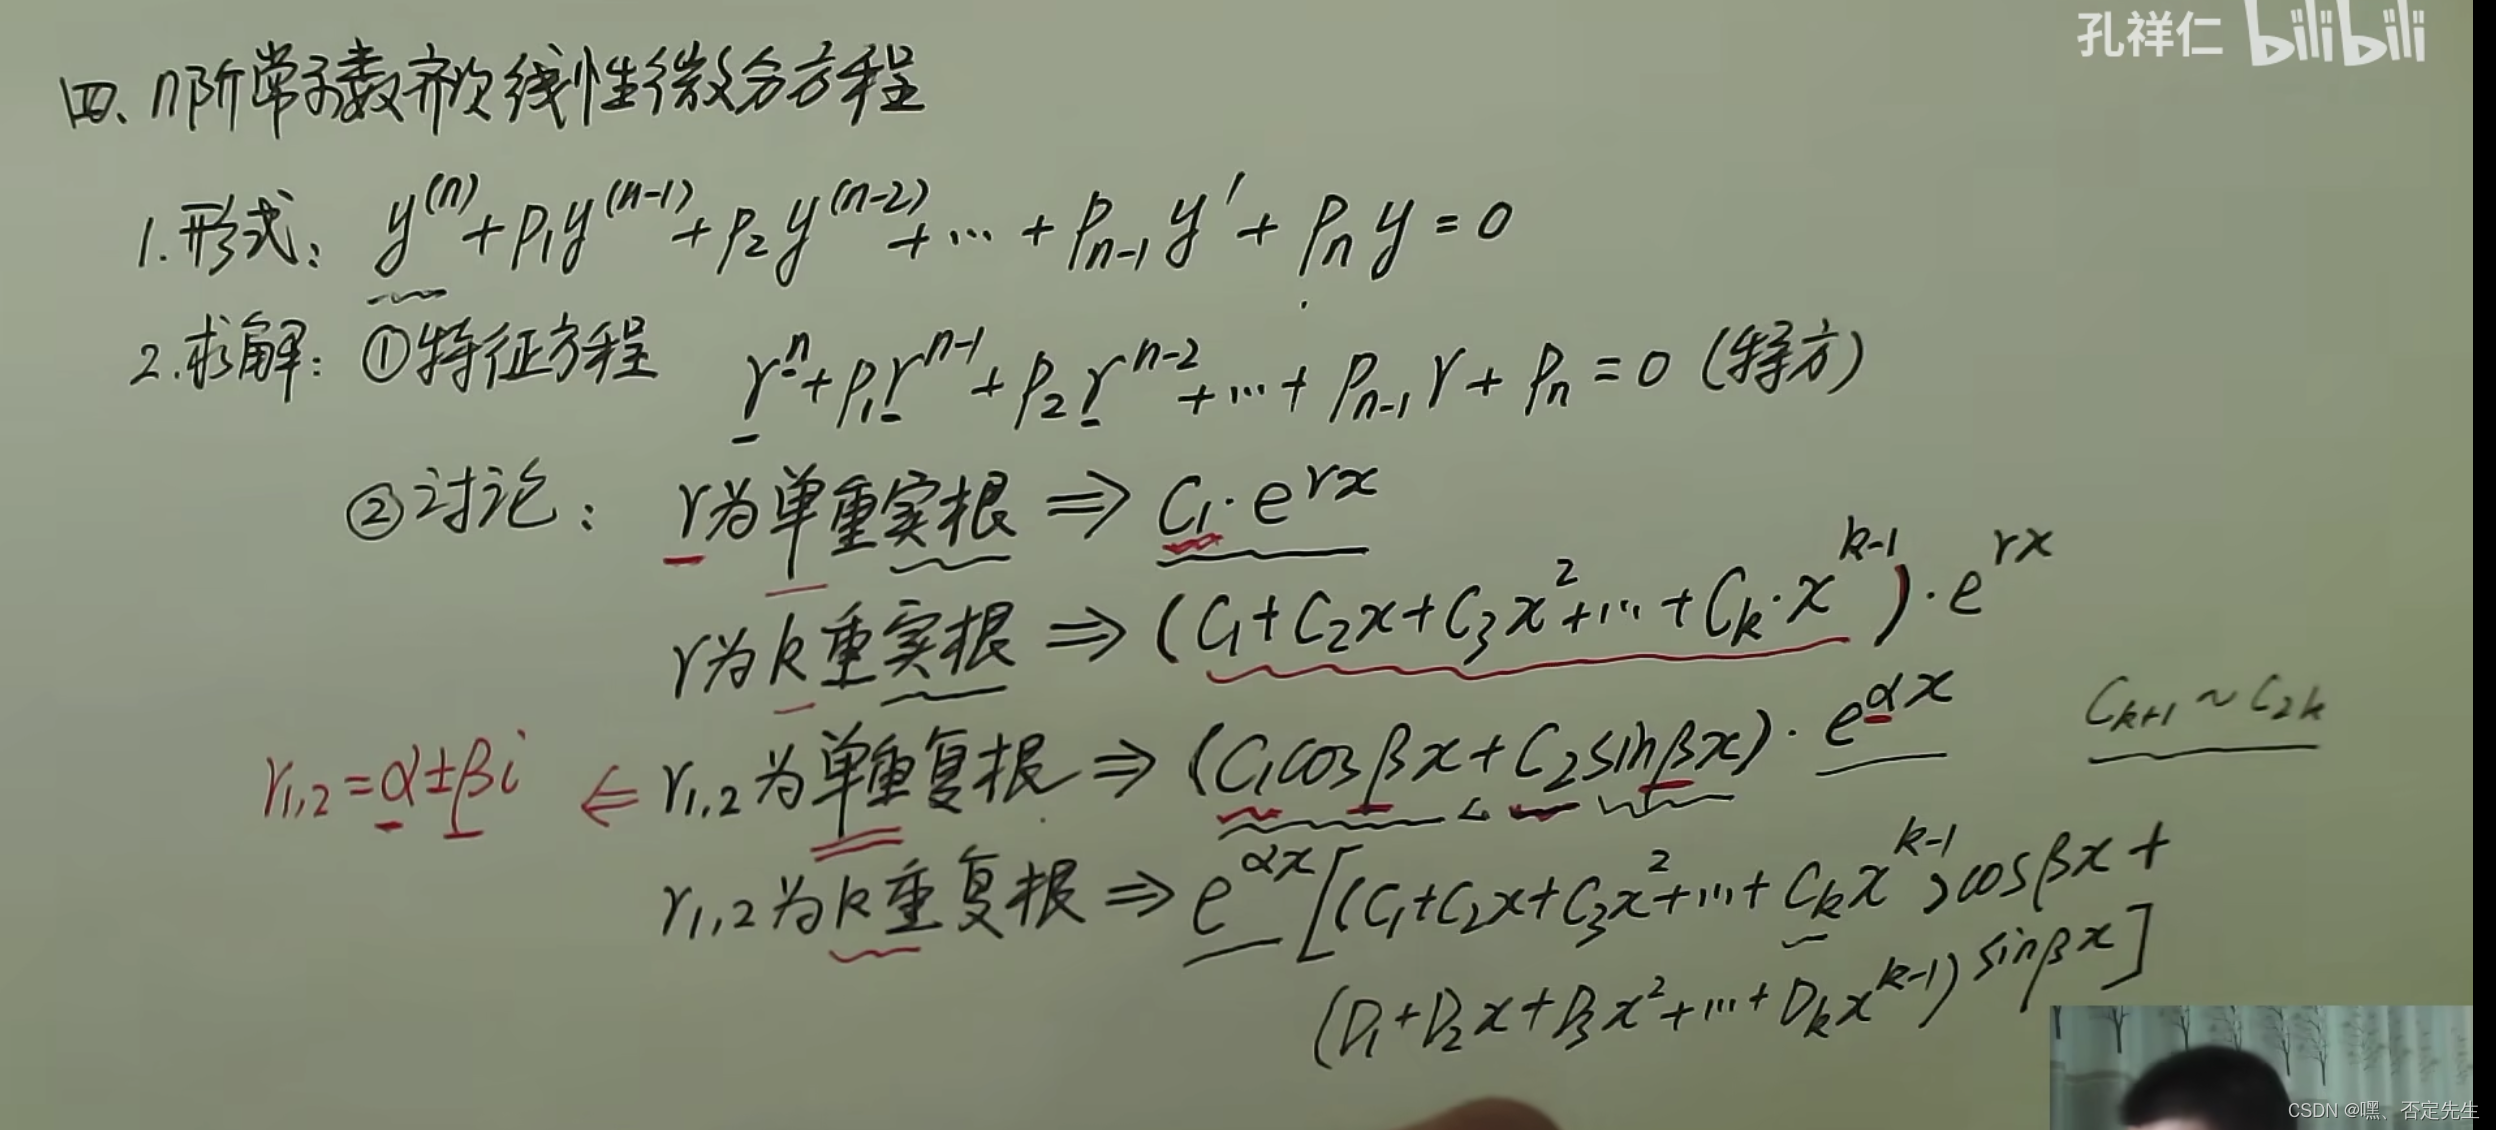 孔祥仁 bilibili
四、n阶常系数齐次线性微分方程
1.形式: y⁽ⁿ⁾+p₁y⁽ⁿ⁻¹⁾+p₂y⁽ⁿ⁻²⁾+…+pₙ₋₁y′+pₙy=0
2.求解: ①特征方程 rⁿ+p₁rⁿ⁻¹+p₂rⁿ⁻²+…+pₙ₋₁r+pₙ=0 (特方)
②讨论: r为单重实根 ⇒ C₁·e^{rx}
r为k重实根 ⇒ (C₁+C₂x+C₃x²+…+Cₖ·x^{k-1})·e^{rx}
r₁,₂=α±βi ⇐ r₁,₂为单重复根 ⇒ (C₁cosβx+C₂sinβx)·e^{αx} C_{k+1}~C_{2k}
r₁,₂为k重复根 ⇒ e^{αx}[(C₁+C₂x+C₃x²+…+Cₖx^{k-1})cosβx+
(D₁+D₂x+D₃x²+…+Dₖx^{k-1})sinβx]
CSDN @嘿、否定先生